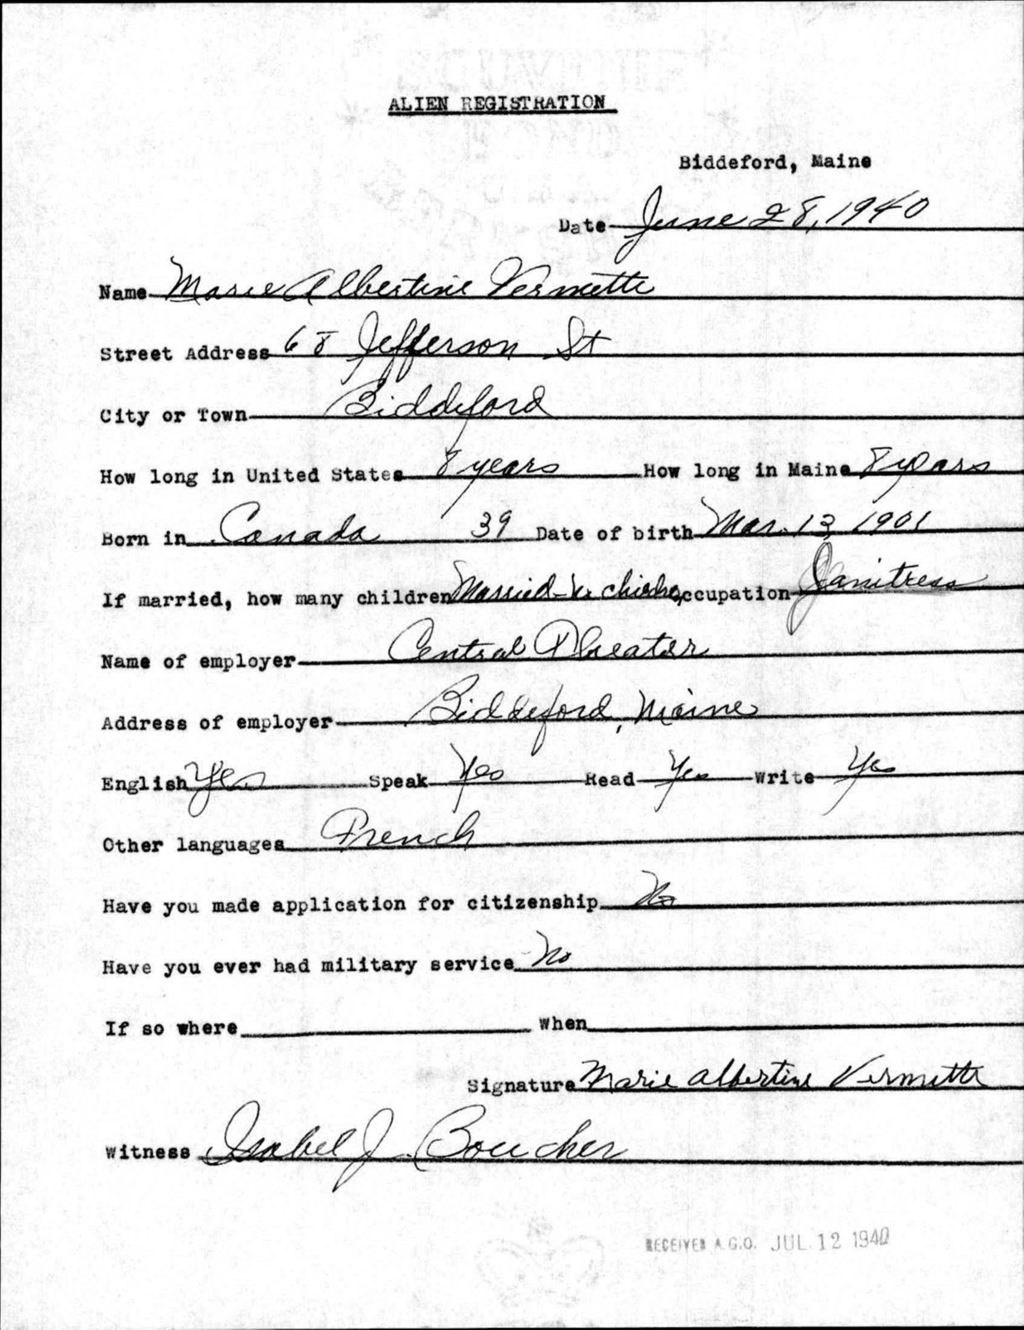 ALIEN REGISTRATION
Biddeford, Maine
Date June 28, 1940
Name Marie Albertine Vermette
Street Address 68 Jefferson St
City or Town Biddeford
How long in United States 8 years How long in Maine 8 years
Born in Canada 39 Date of birth Mar. 13, 1901
If married, how many children Married - no Occupation Janitress
Name of employer Central Theater
Address of employer Biddeford, Maine
English Yes Speak Yes Read Yes Write Yes
Other languages French
Have you made application for citizenship No
Have you ever had military service No
If so where When
Signature Marie Albertine Vermette
Witness Isabel J. Boucher
RECEIVED A.G.O. JUL 12 1940